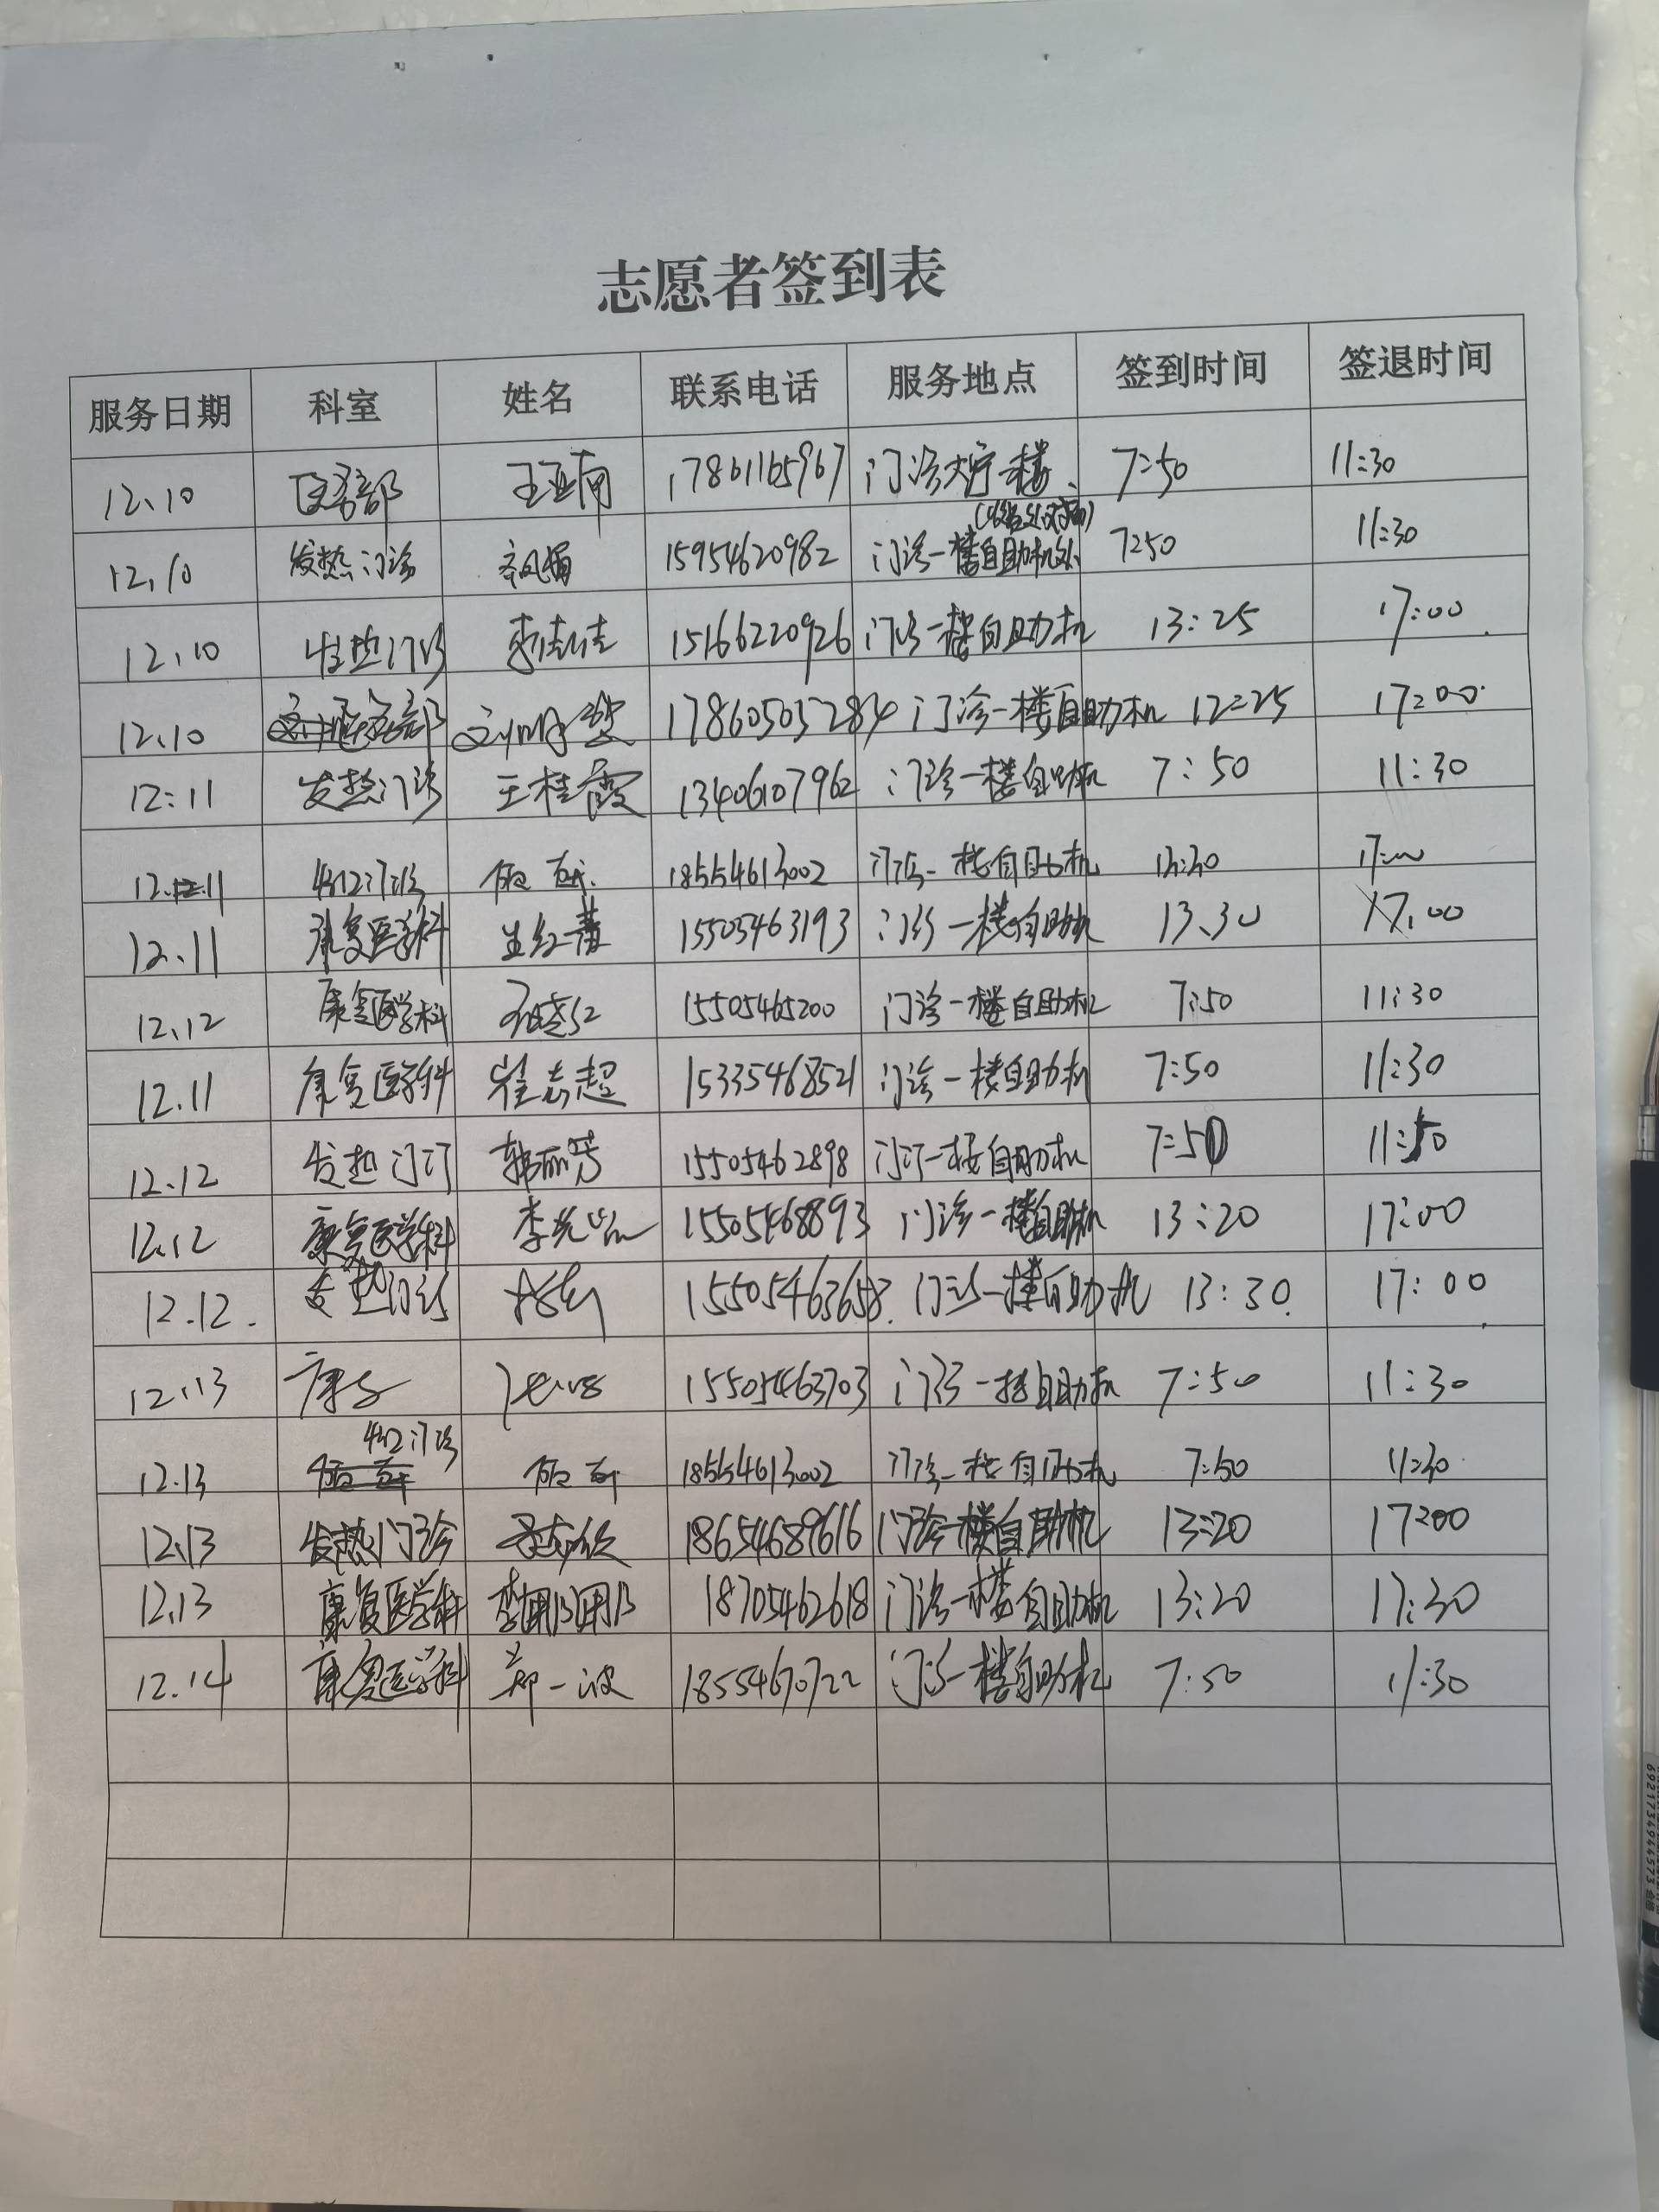 志愿者签到表
服务日期 科室 姓名 联系电话 服务地点 签到时间 签退时间
12.10 医务部 王亚南 17861165967 门诊大厅一楼 7:50 11:30
12.10 发热门诊 15954620982 门诊一楼自助机处 7:50 11:30
12.10 发热门诊 李佳佳 15166220926 门诊一楼自助机 13:25 17:00
12.10 17860505284 门诊一楼自助机 12:25 17:00
12:11 发热门诊 王桂霞 13406107962 门诊一楼自助机 7:50 11:30
12.11 18554613002 门诊一楼自助机 13:30 17:00
12.11 康复医学科 15505463193 门诊一楼自助机 13.30 17.00
12.12 康复医学科 15505465200 门诊一楼自助机 7:50 11:30
12.11 康复医学科 崔志超 15335468521 门诊一楼自助机 7:50 11:30
12.12 发热门诊 韩丽芳 15505462898 门诊一楼自助机 7:50
12.12 康复医学科 15505468893 门诊一楼自助机 13:20 17:00
12.12. 发热门诊 15505463658. 门诊一楼自助机 13:30. 17:00
12.13 康复 15505463703 门诊一楼自助机 7:50 11:30
12.13 18554613002 门诊一楼自助机 7:50 11:30
12.13 发热门诊 18654689616 门诊一楼自助机 13:20 17:00
12.13 康复医学科 李珊珊 18705462618 门诊一楼自助机 13:20 17:30
12.14 康复医学科 郑一波 18554670722 门诊一楼自助机 7:50 11:30